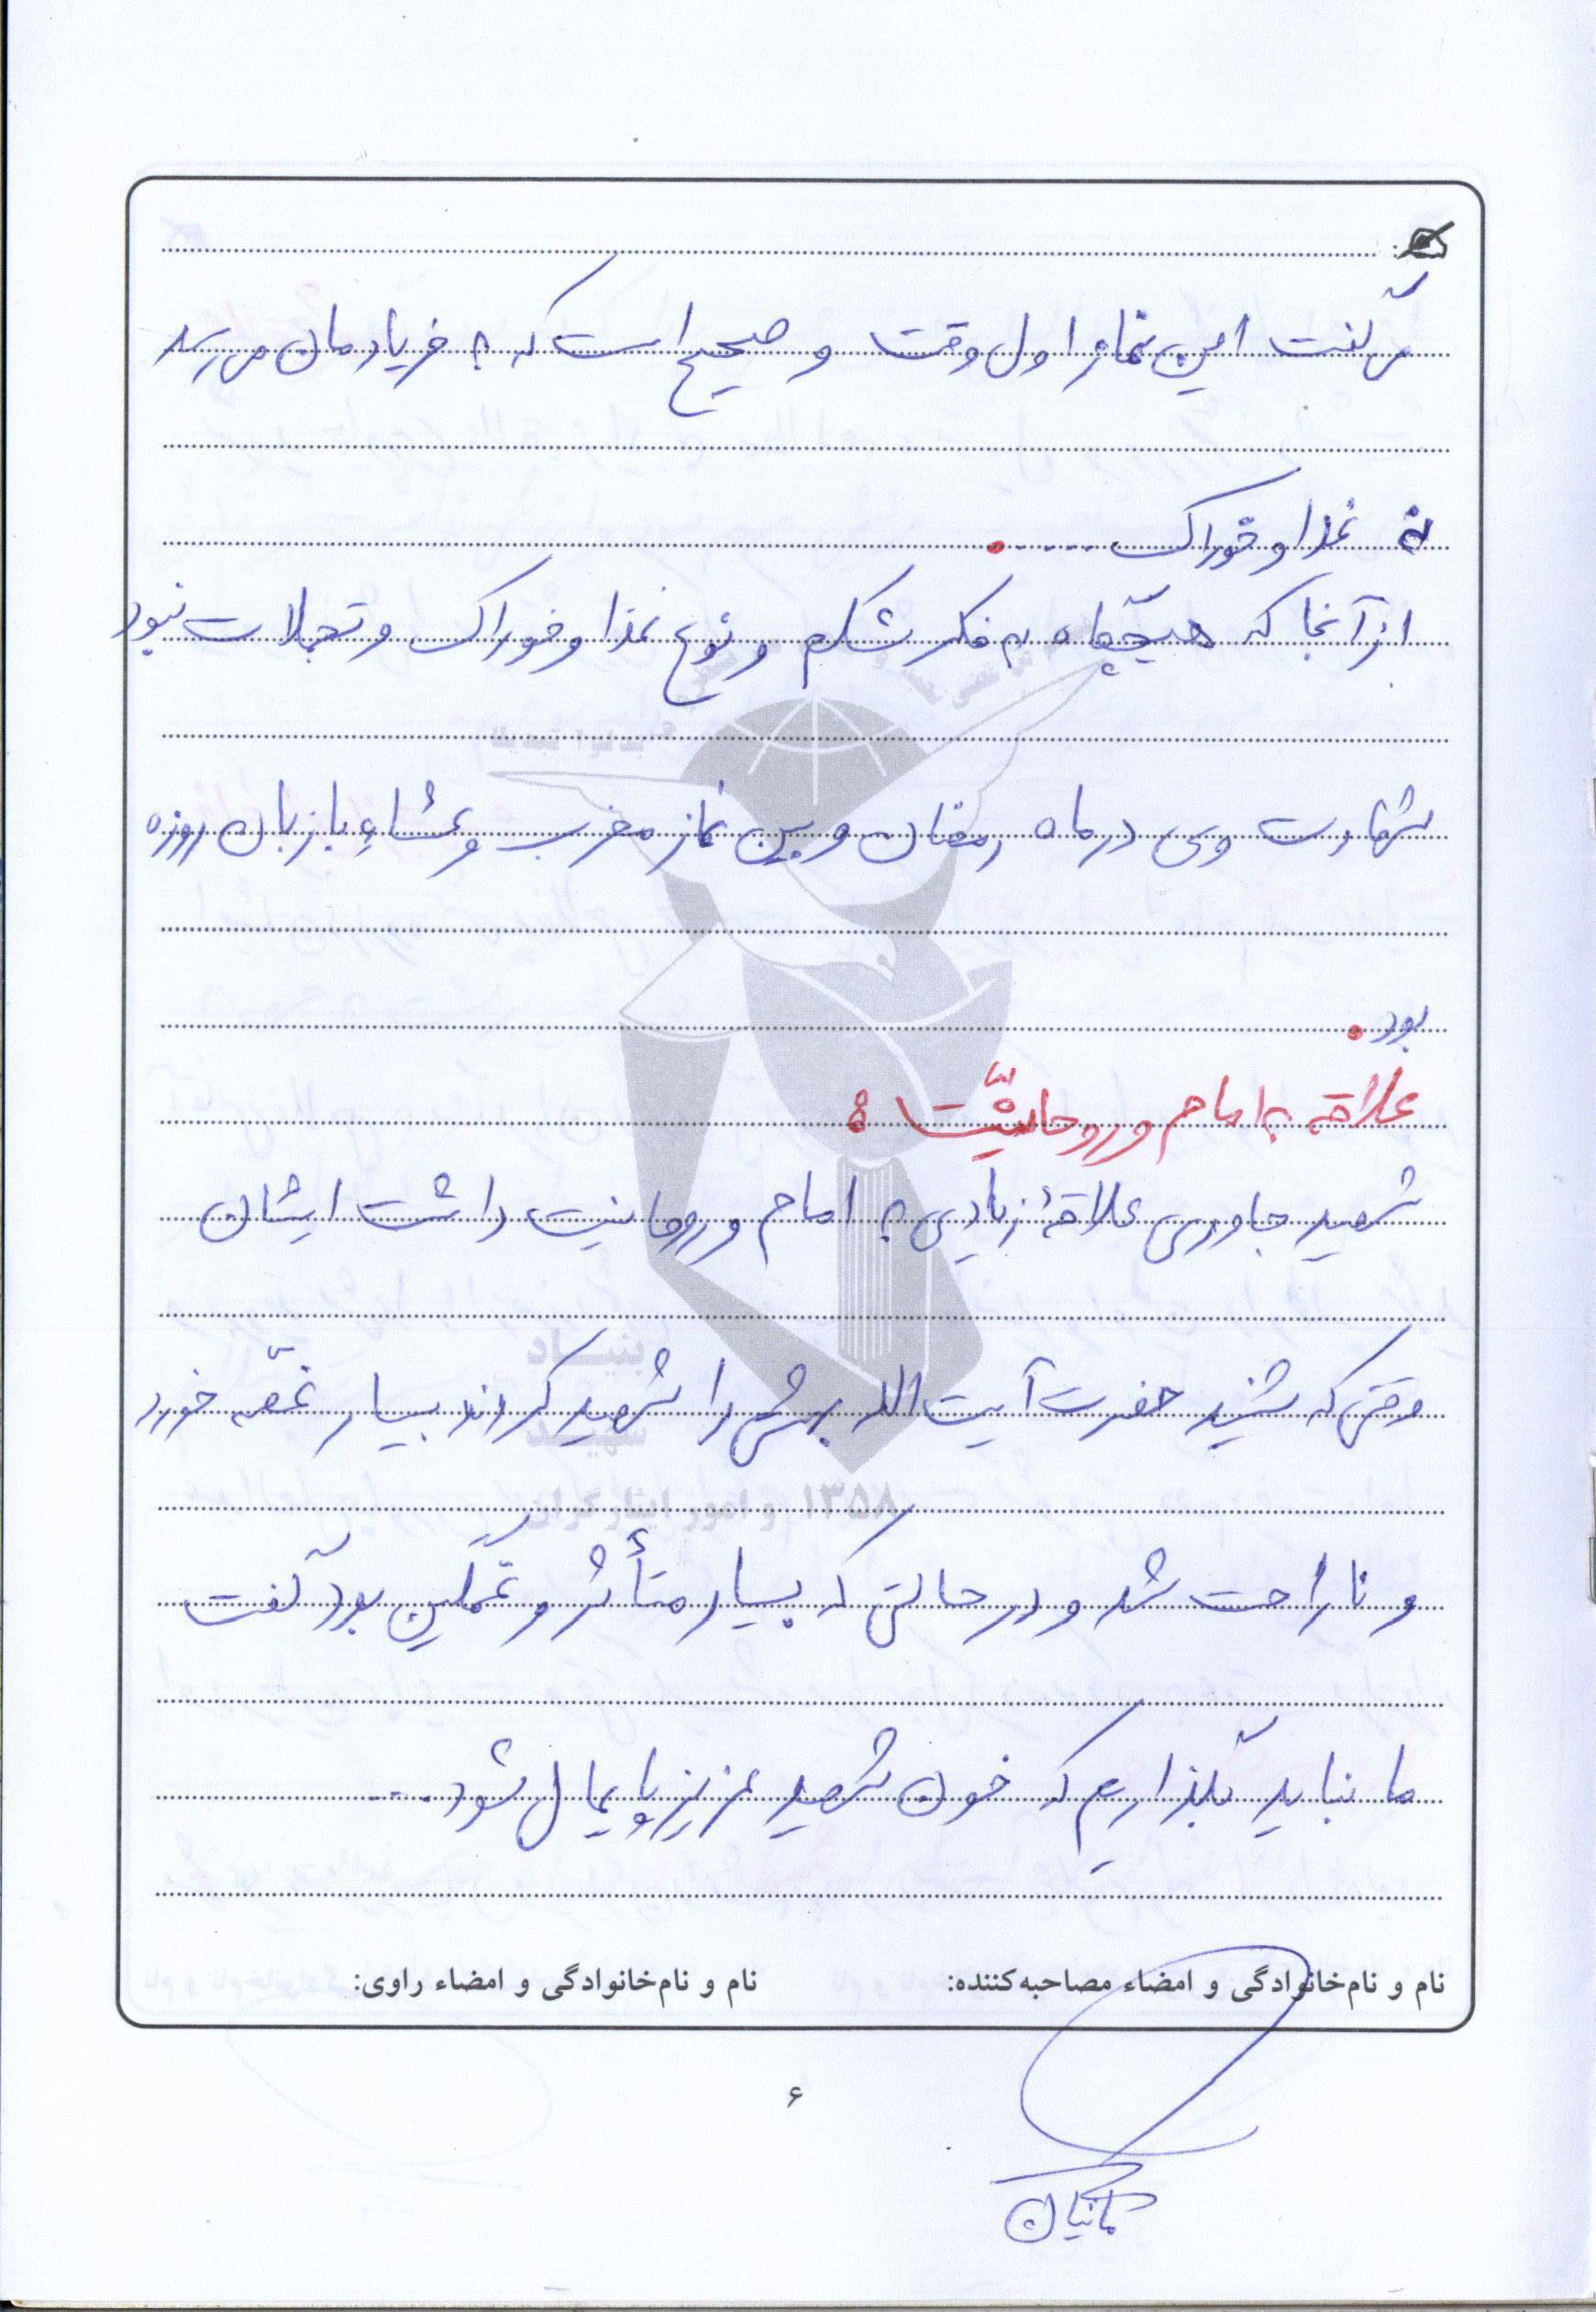 می گفت این نماز اول وقت و صحیح است که به فریادمان می رسد
نه غذا و خوراک ......
از آنجا که هیچگاه به فکر شکم و نوع غذا و خوراک و تجملات نبود
شهادت وی در ماه رمضان و بین نماز مغرب و عشاء با زبان روزه
بود.
علاقه به امام و روحانیّت :
شهید جاوری علاقهٔ زیادی به امام و روحانیت داشت ایشان
وقتی که شنید حضرت آیت الله بهشتی را شهید کردند بسیار غصّه خورد
و ناراحت شد و در حالتی که بسیار متأثر و غمگین بود گفت
ما نباید بگذاریم که خون شهید عزیز پایمال شود....
بنیاد
شهید
و امور ایثارگران ۱۳۵۸
نام و نام‌خانوادگی و امضاء مصاحبه‌کننده: نام و نام‌خانوادگی و امضاء راوی:
۶